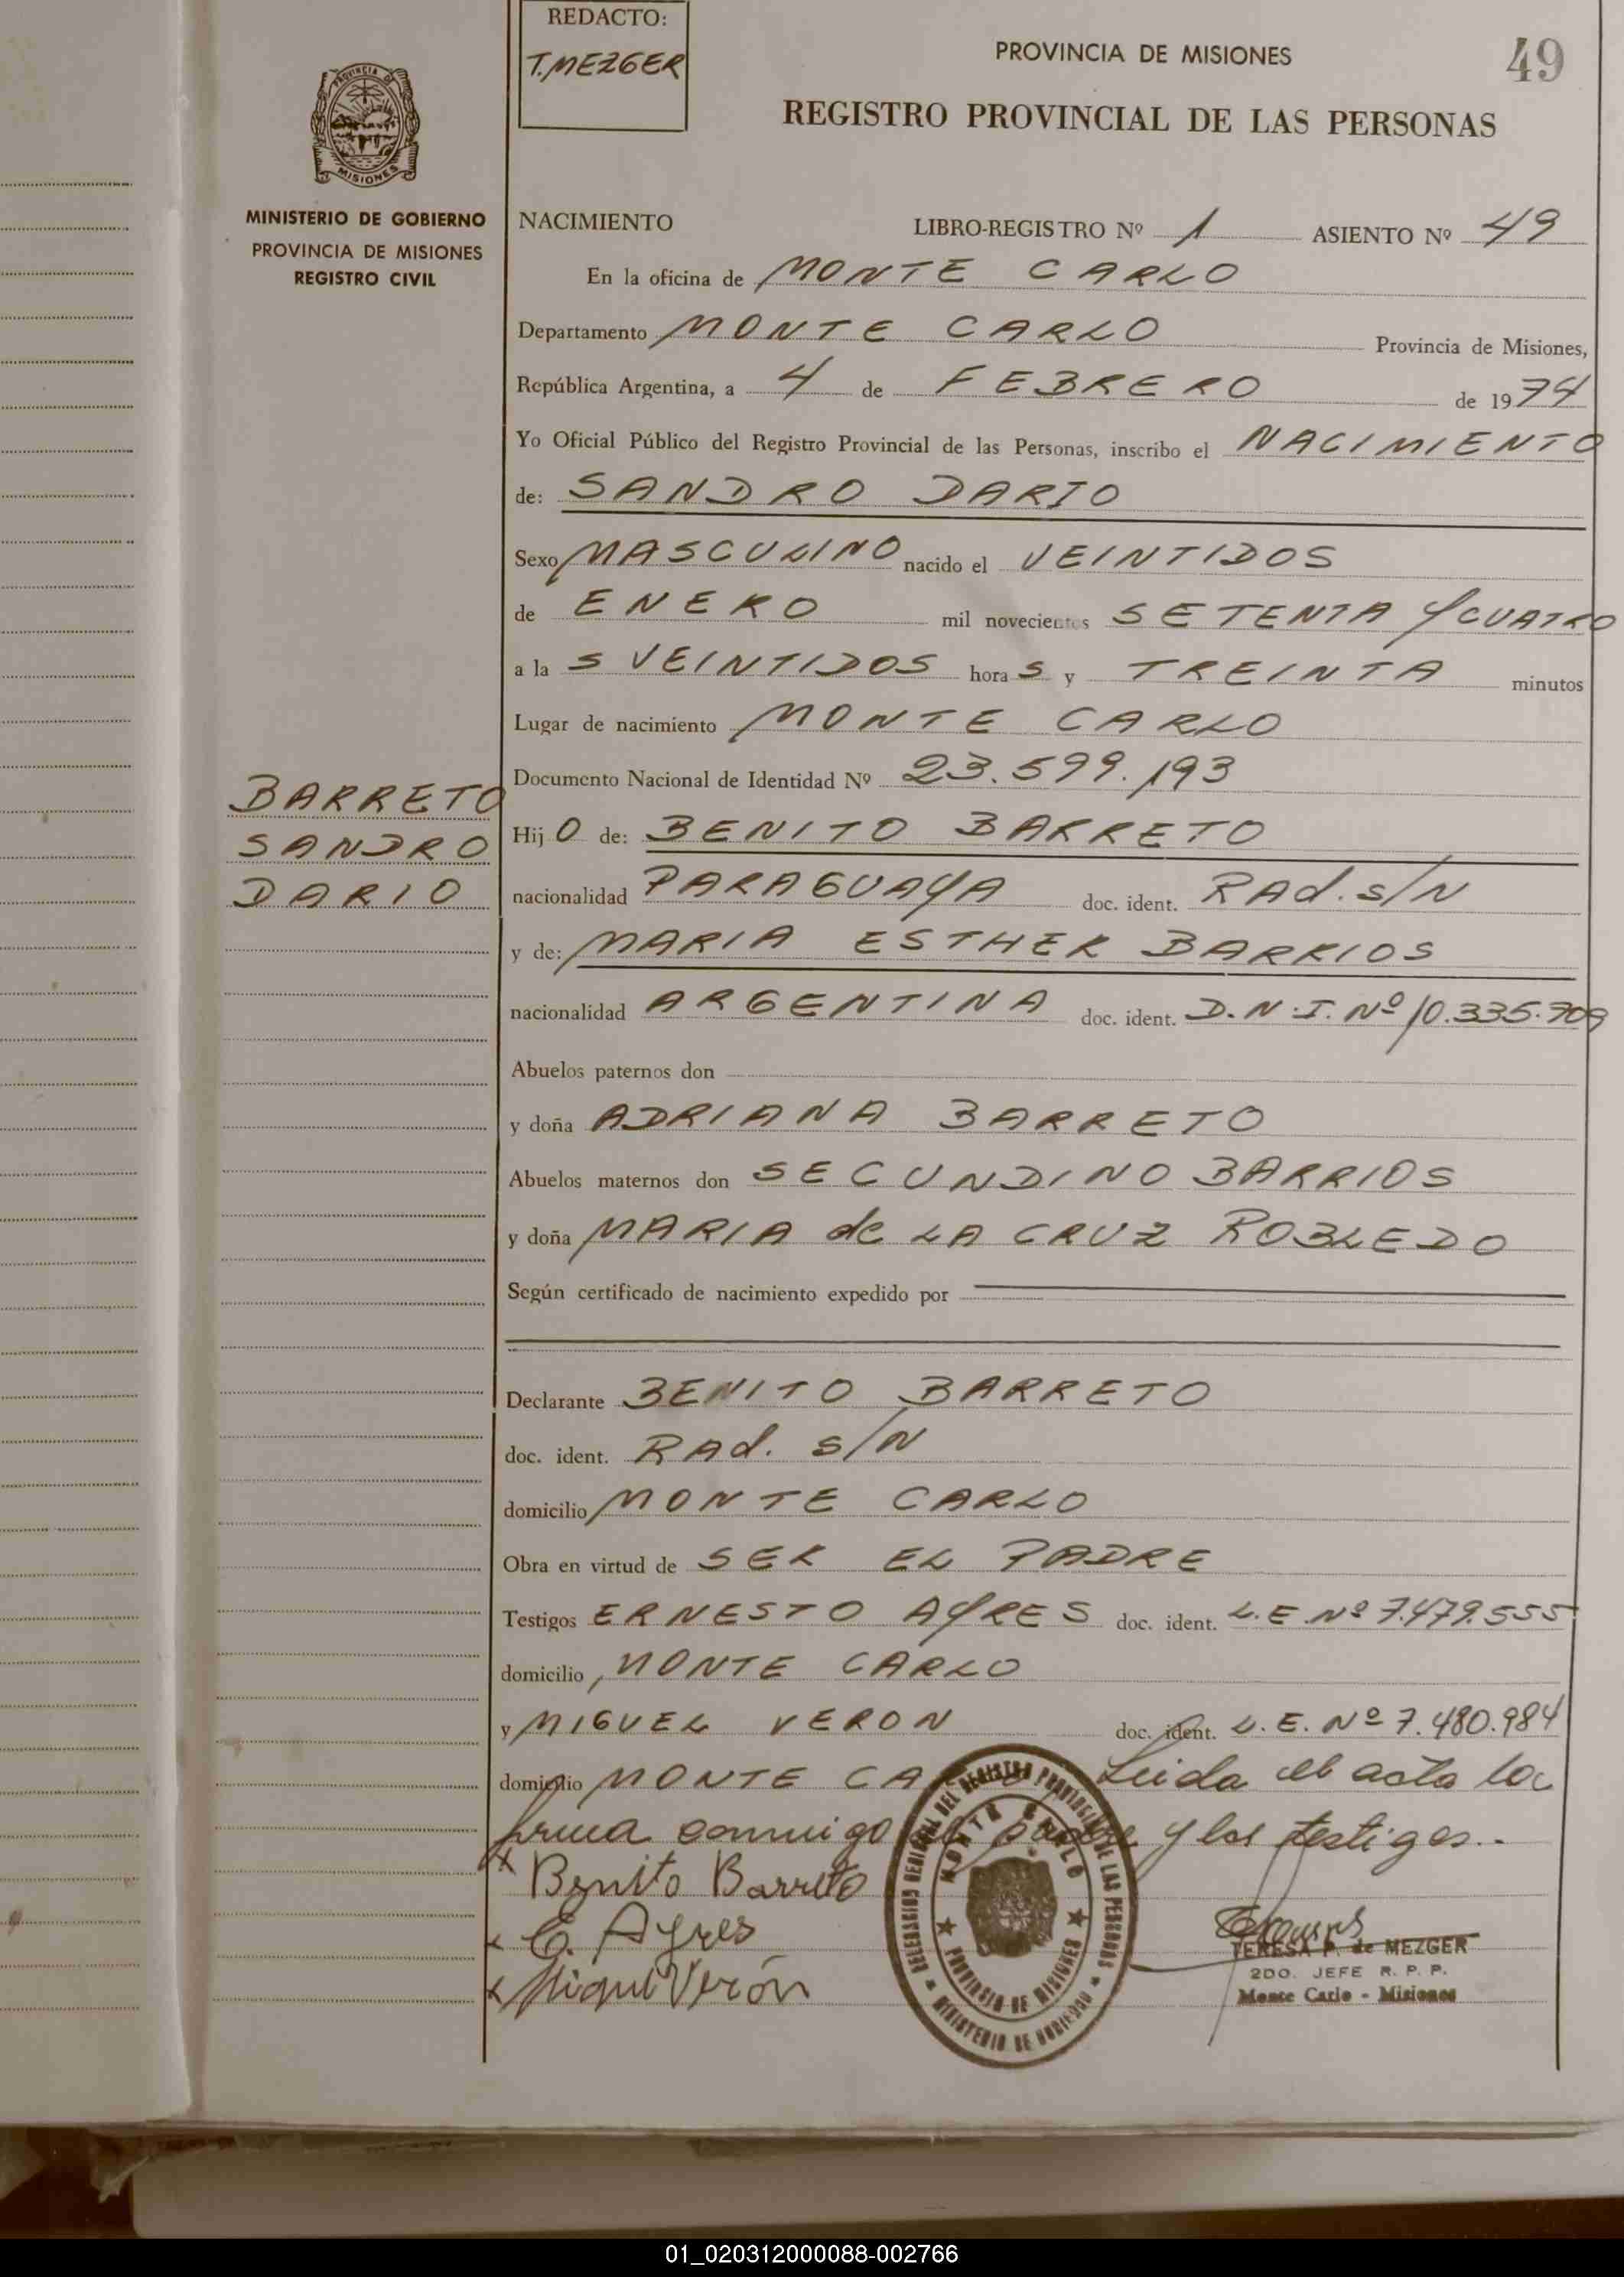 REDACTO:
T. MEZGER
PROVINCIA DE MISIONES
49
REGISTRO PROVINCIAL DE LAS PERSONAS
PROVINCIA DE
MISIONES
MINISTERIO DE GOBIERNO
PROVINCIA DE MISIONES
REGISTRO CIVIL
NACIMIENTO LIBRO-REGISTRO Nº 1 ASIENTO Nº 49
En la oficina de MONTE CARLO
Departamento MONTE CARLO Provincia de Misiones,
República Argentina, a 4 de FEBRERO de 1974
Yo Oficial Público del Registro Provincial de las Personas, inscribo el NACIMIENTO
de: SANDRO DARIO
Sexo MASCULINO nacido el VEINTIDOS
de ENERO mil novecientos SETENTA Y CUATRO
a la S VEINTIDOS hora S y TREINTA minutos
Lugar de nacimiento MONTE CARLO
Documento Nacional de Identidad Nº 23.599.193
BARRETO
SANDRO
DARIO
Hij O de: BENITO BARRETO
nacionalidad PARAGUAYA doc. ident. RAd. S/N
y de: MARIA ESTHER BARRIOS
nacionalidad ARGENTINA doc. ident. D.N.I. Nº 10.335.709
Abuelos paternos don
y doña ADRIANA BARRETO
Abuelos maternos don SECUNDINO BARRIOS
y doña MARIA de LA CRUZ ROBLEDO
Según certificado de nacimiento expedido por
Declarante BENITO BARRETO
doc. ident. RAd. S/N
domicilio MONTE CARLO
Obra en virtud de SER EL PADRE
Testigos ERNESTO AYRES doc. ident. L.E. Nº 7.479.555
domicilio MONTE CARLO
y MIGUEL VERON doc. ident. L.E. Nº 7.480.984
domicilio MONTE CA Leida el acta la
firma conmigo el padre y los testigos.-
x Benito Barreto
x E. Ayres
x Miguel Verón
DEL REGISTRO PROVINCIAL DE LAS PERSONAS
MONTE CARLO
PROVINCIA DE MISIONES
MINISTERIO DE GOBIERNO
TERESA P. de MEZGER
2DO. JEFE R. P. P.
Monte Carlo - Misiones
01_020312000088-002766